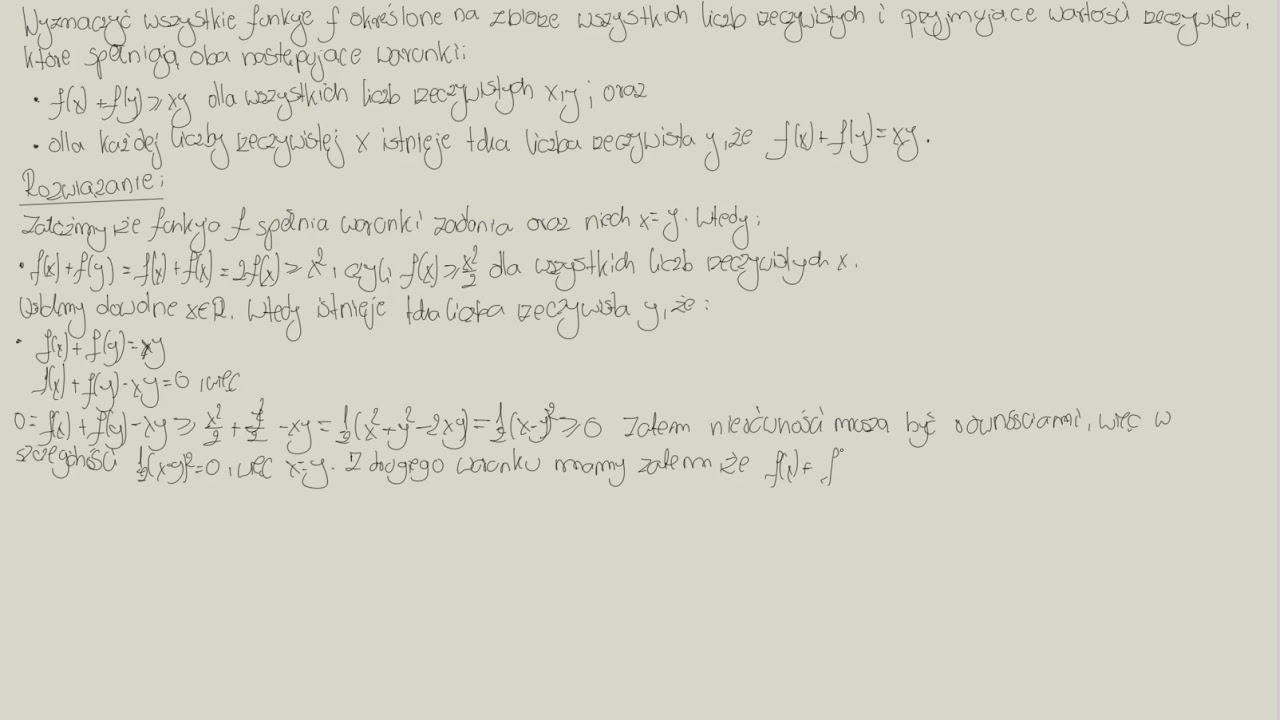 Wyznaczyć wszystkie funkcje f określone na zbiorze wszystkich liczb rzeczywistych i przyjmujące wartości rzeczywiste,
które spełniają oba następujące warunki:
• f(x)+f(y)⩾xy dla wszystkich liczb rzeczywistych x,y; oraz
• dla każdej liczby rzeczywistej x istnieje taka liczba rzeczywista y, że f(x)+f(y)=xy.
Rozwiązanie:
Załóżmy, że funkcja f spełnia warunki zadania oraz niech x=y. Wtedy:
• f(x)+f(y)=f(x)+f(x)=2f(x)⩾x², czyli f(x)⩾x²/2 dla wszystkich liczb rzeczywistych x.
Weźmy dowolne x∈R. Wtedy istnieje taka liczba rzeczywista y, że:
• f(x)+f(y)=xy
f(x)+f(y)-xy=0, więc
0=f(x)+f(y)-xy⩾x²/2+y²/2-xy=1/2(x²+y²-2xy)=1/2(x-y)²⩾0 Zatem nierówności muszą być równościami, więc w
szczególności 1/2(x-y)²=0, więc x=y. Z drugiego warunku mamy zatem, że f(x)+f